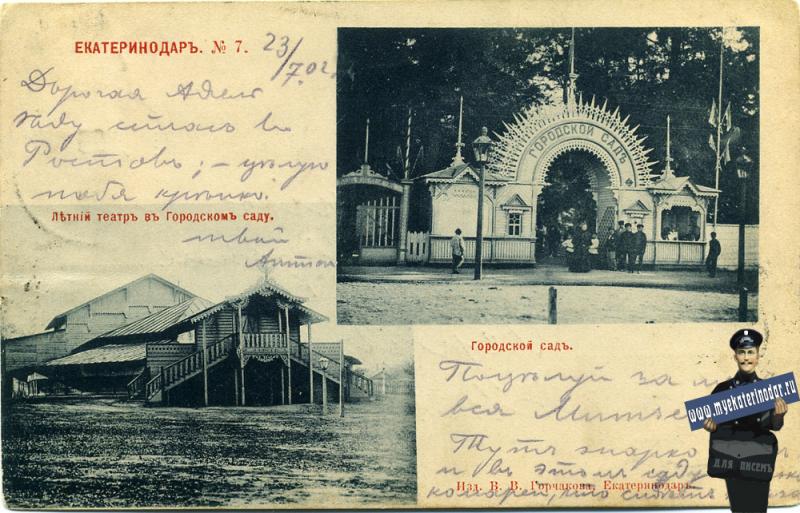 ЕКАТЕРИНОДАРЪ. № 7.
23/7.02.
Дорогая Адель
жду писемъ въ
Ростовъ; – цѣлую
тебя крѣпко.
твой
Антон
Лѣтній театръ въ Городскомъ саду.
ГОРОДСКОЙ САДЪ
Городской садъ.
Поцѣлуй за м
вся
Тутъ жарко
и в этом саду
комарей, что
Изд. В. В. Горчакова, Екатеринодаръ.
www.myekaterinodar.ru
ДЛЯ ПИСЕМЪ